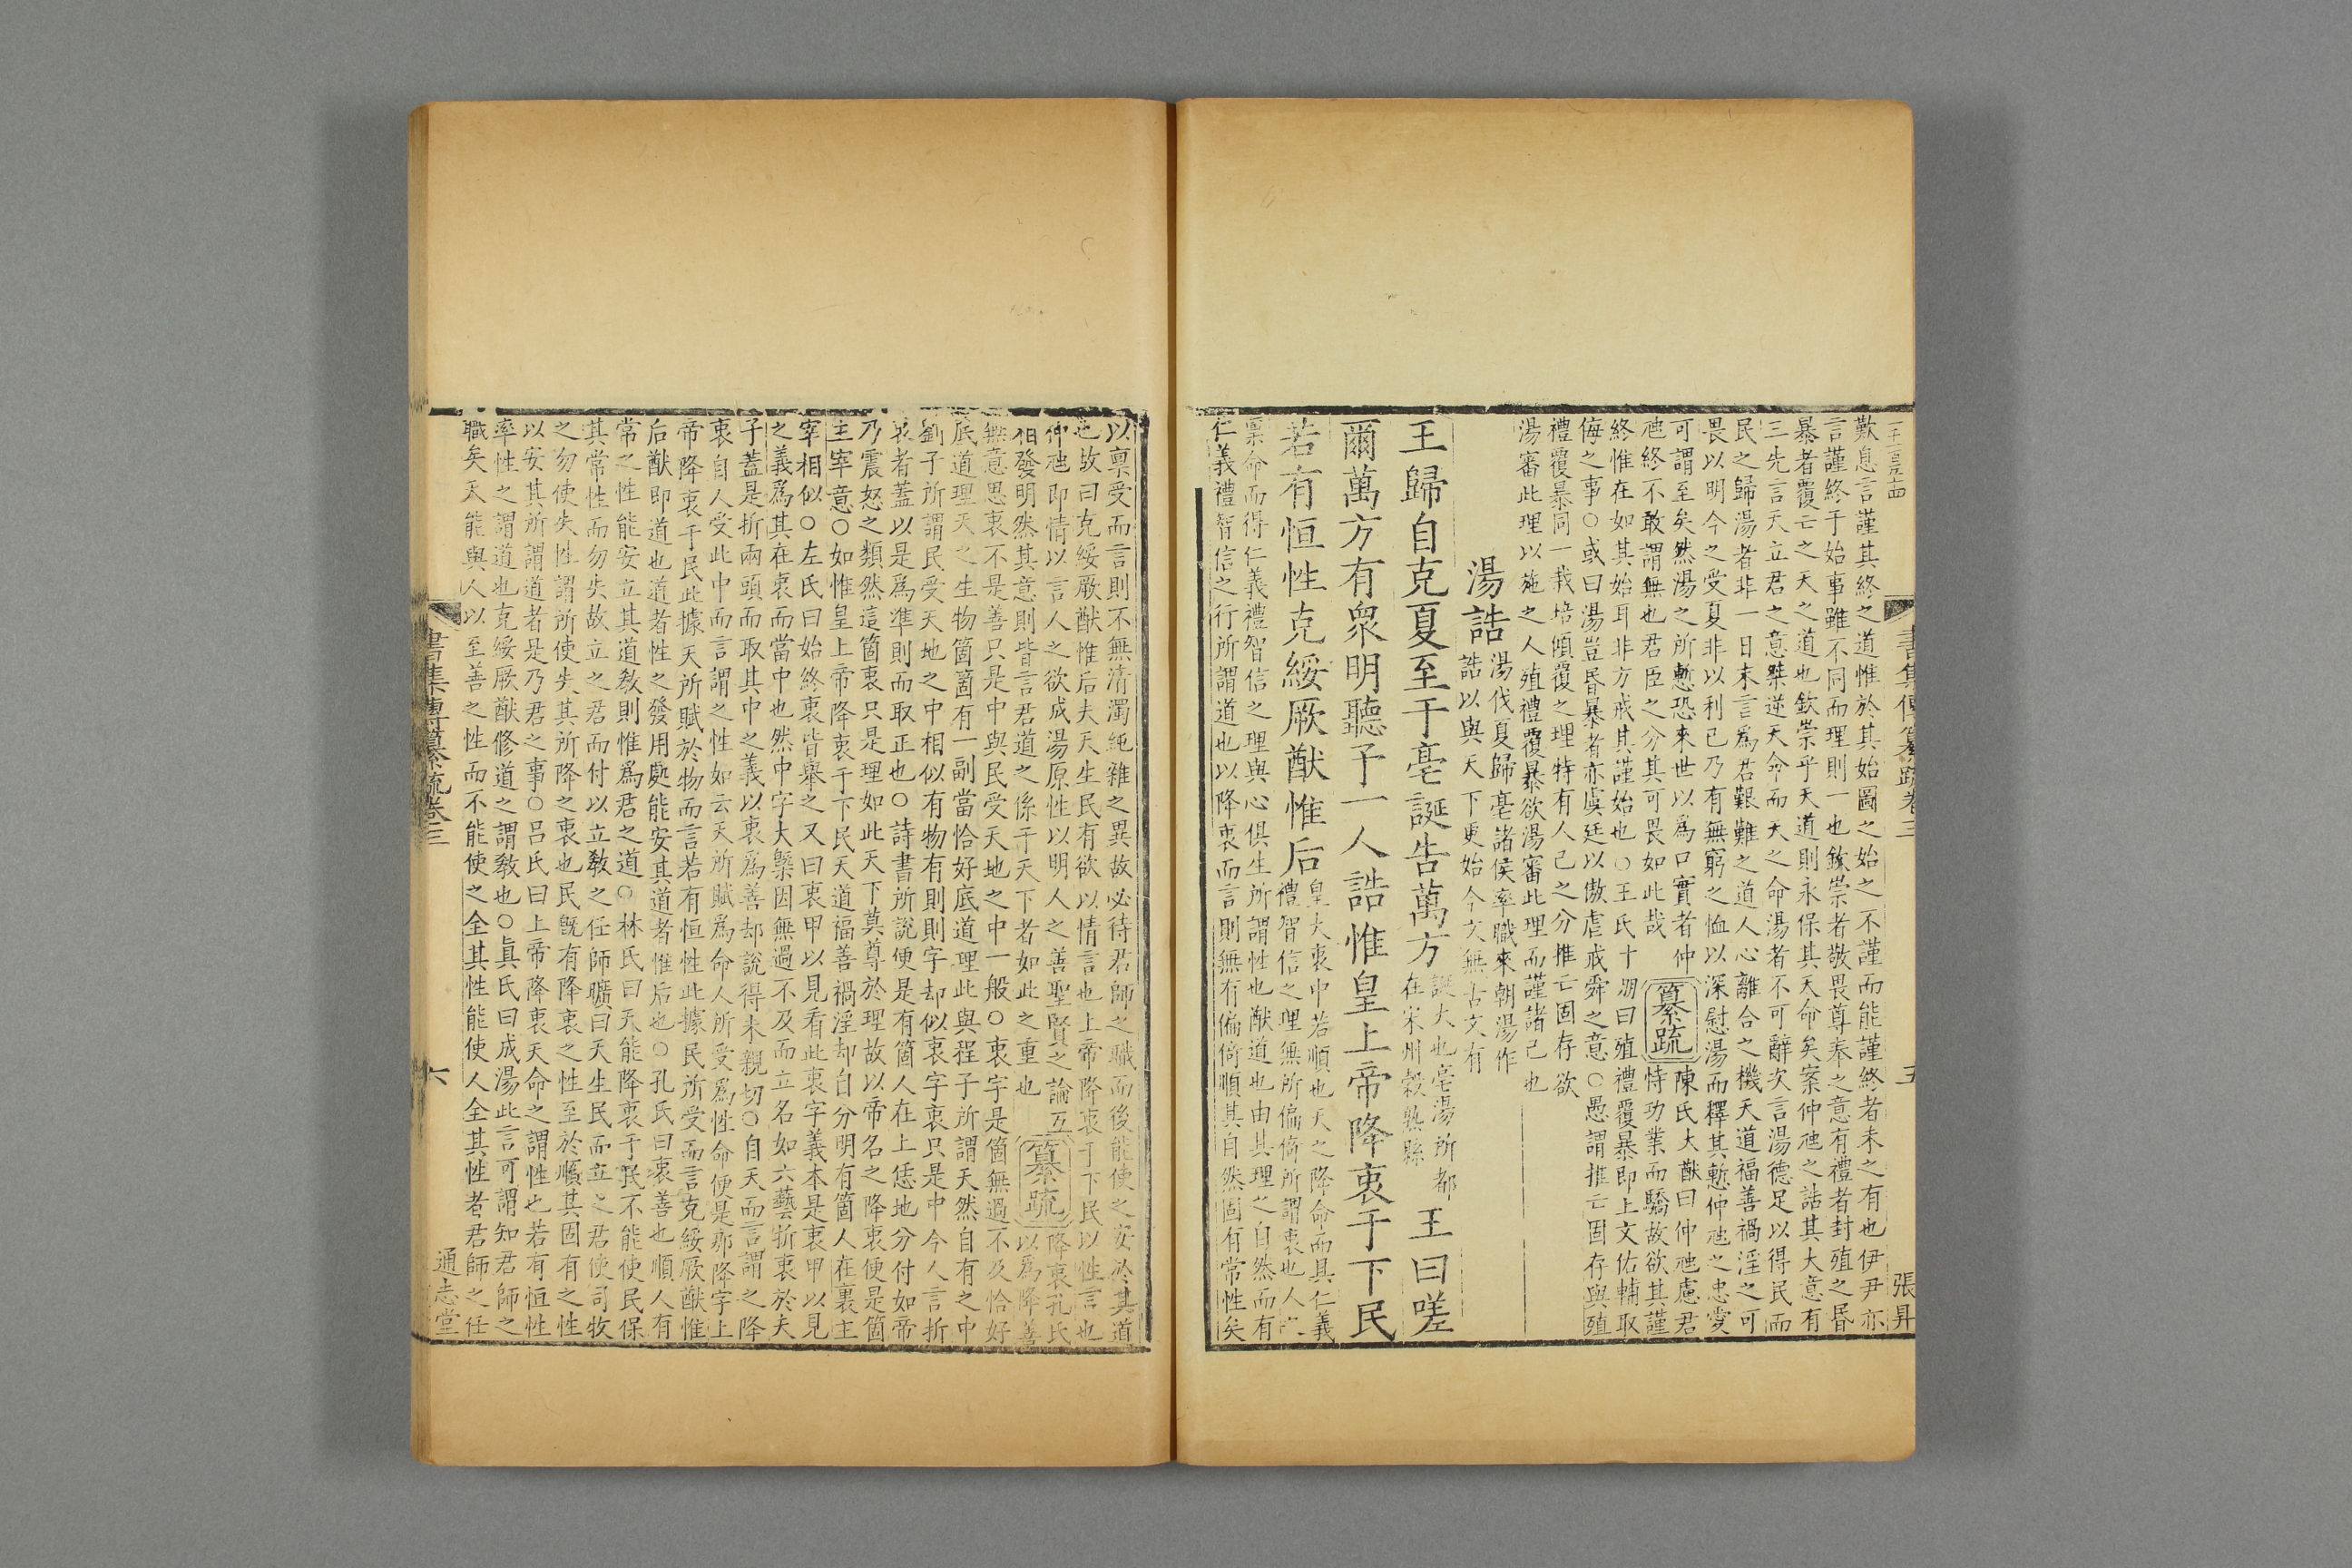 書集傳纂疏卷三
五
張昇
歎息言謹其終之道惟於其始圖之始之不謹而能謹終者未之有也伊尹亦
言謹終于始事雖不同而理則一也欽崇者敬畏尊奉之意有禮者封殖之昏
暴者覆亡之天之道也欽崇乎天道則永保其天命矣案仲虺之誥其大意有
三先言天立君之意桀逆天命而天之命湯者不可辭次言湯德足以得民而
民之歸湯者非一日末言爲君艱難之道人心離合之機天道福善禍淫之可
畏以明今之受夏非以利已乃有無窮之恤以深慰湯而釋其慙仲虺之忠愛
可謂至矣然湯之所慙恐來世以爲口實者仲
虺終不敢謂無也君臣之分其可畏如此哉
纂疏
陳氏大猷曰仲虺慮君
恃功業而驕故欲其謹
終惟在如其始耳非方戒其謹始也○王氏十朋曰殖禮覆暴即上文佑輔取
侮之事○或曰湯豈昏暴者亦虞廷以傲虐戒舜之意○愚謂推亡固存與殖
禮覆暴同一栽培傾覆之理特有人己之分推亡固存欲
湯審此理以施之人殖禮覆暴欲湯審此理而謹諸己也
湯誥
湯伐夏歸亳諸侯率職來朝湯作
誥以與天下更始今文無古文有
王歸自克夏至于亳誕告萬方
誕大也亳湯所都
在宋州穀熟縣
王曰嗟
爾萬方有衆明聽予一人誥惟皇上帝降衷于下民
若有恒性克綏厥猷惟后
皇大衷中若順也天之降命而具仁義
禮智信之理無所偏倚所謂衷也人之
稟命而得仁義禮智信之理與心俱生所謂性也猷道也由其理之自然而有
仁義禮智信之行所謂道也以降衷而言則無有偏倚順其自然固有常性矣
以稟受而言則不無清濁純雜之異故必待君師之職而後能使之安於其道
也故曰克綏厥猷惟后夫天生民有欲以情言也上帝降衷于下民以性言也
仲虺即情以言人之欲成湯原性以明人之善聖賢之論互
相發明然其意則皆言君道之係于天下者如此之重也
纂疏
降衷孔氏
以爲降善
無意思衷不是善只是中與民受天地之中一般○衷字是箇無過不及恰好
底道理天之生物箇箇有一副當恰好底道理此與程子所謂天然自有之中
劉子所謂民受天地之中相似有物有則則字却似衷字衷只是中今人言折
衷者蓋以是爲準則而取正也○詩書所說便是有箇人在上恁地分付如帝
乃震怒之類然這箇衷只是理如此天下莫尊於理故以帝名之降衷便是箇
主宰意○如惟皇上帝降衷于下民天道福善禍淫却自分明有箇人在裏主
宰相似○左氏曰始終衷皆舉之又曰衷甲以見看此衷字義本是衷甲以見
之義爲其在衷而當中也然中字大槩因無過不及而立名如六藝折衷於夫
子蓋是折兩頭而取其中之義以衷爲善却說得未親切○自天而言謂之降
衷自人受此中而言謂之性如云天所賦爲命人所受爲性命便是那降字上
帝降衷于民此據天所賦於物而言若有恒性此據民所受而言克綏厥猷惟
后猷即道也道者性之發用處能安其道者惟后也○孔氏曰衷善也順人有
常之性能安立其道教則惟爲君之道○林氏曰天能降衷于民不能使民保
其常性而勿失故立之君而付以立敎之任師曠曰天生民而立之君使司牧
之勿使失性謂所使失其所降之衷也民旣有降衷之性至於順其固有之性
以安其所謂道者是乃君之事○呂氏曰上帝降衷天命之謂性也若有恒性
率性之謂道也克綏厥猷修道之謂敎也○眞氏曰成湯此言可謂知君師之
職矣天能與人以至善之性而不能使之全其性能使人全其性者君師之任
書集傳纂疏卷三
六
通志堂